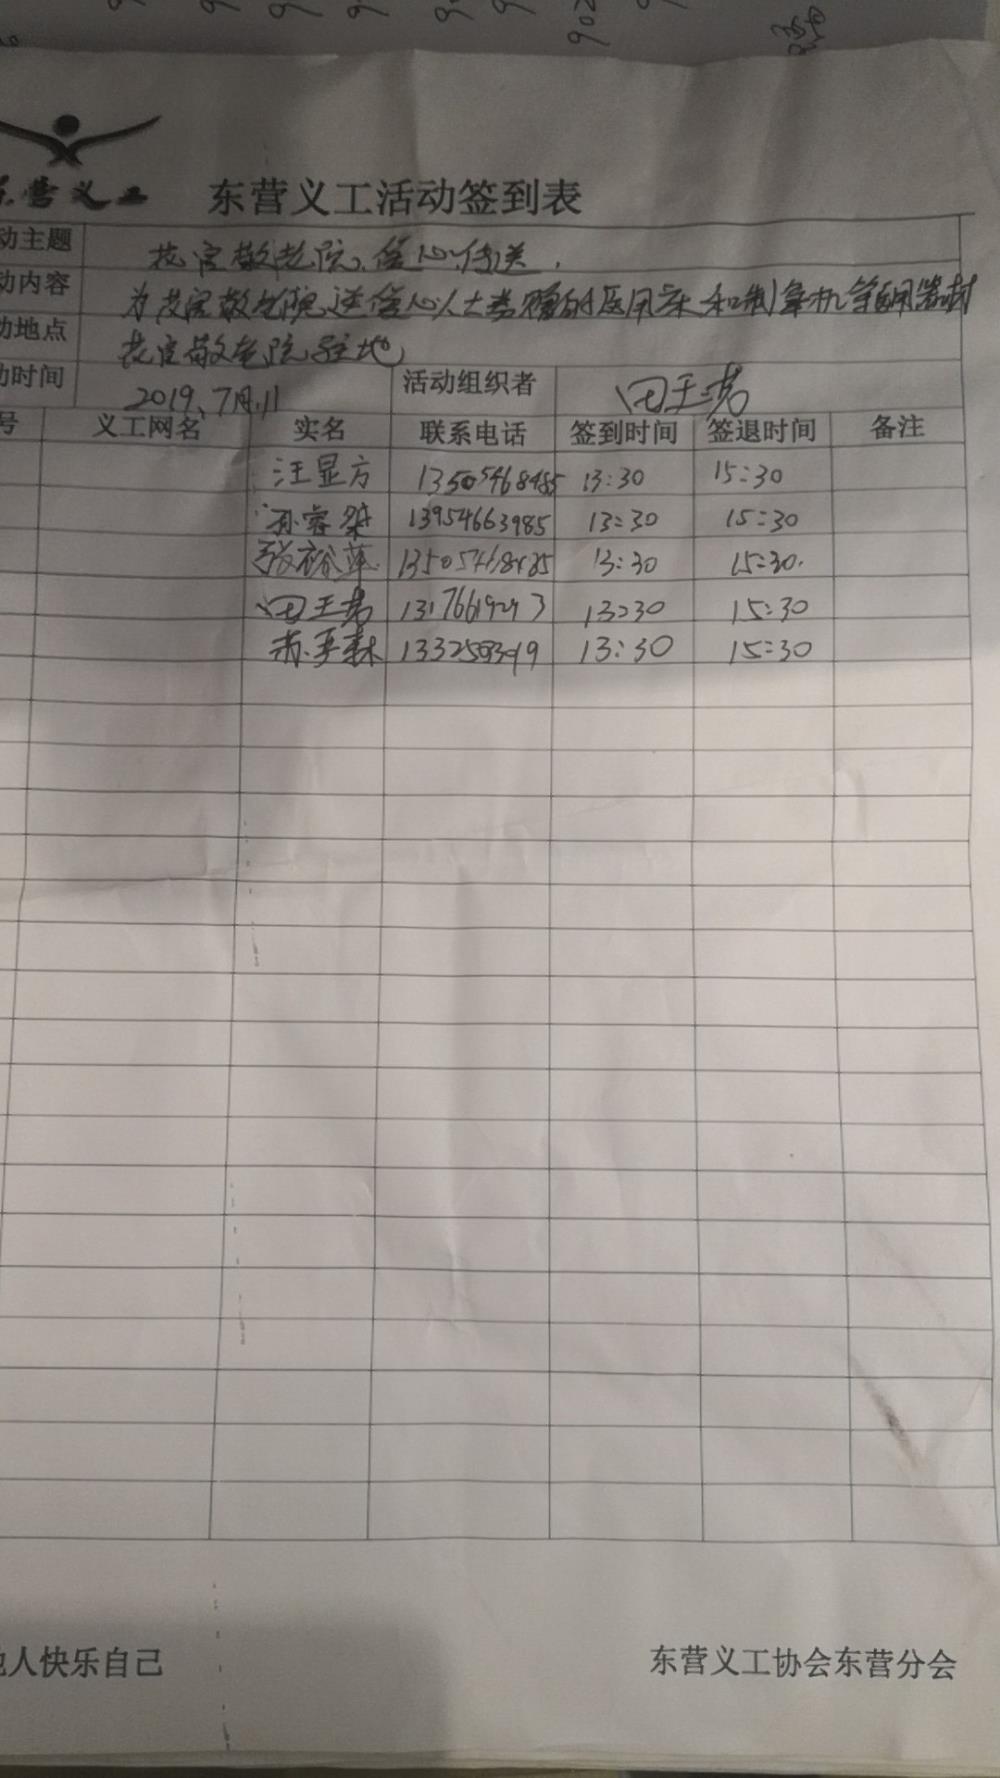 东营义工 东营义工活动签到表
动主题 花官敬老院、爱心传送.
动内容 为花官敬老院送爱心人士 医用床和制氧机等 器材
动地点 花官敬老院驻地
动时间 2019、7月.11 活动组织者 田玉芳
号 义工网名 实名 联系电话 签到时间 签退时间 备注
汪显方 13505468485 13:30 15:30
孙睿 13954663985 13:30 15:30
张裕萍 13505468485 13:30 15:30.
田玉芳 13:30 15:30
13:30 15:30
他人快乐自己 东营义工协会东营分会